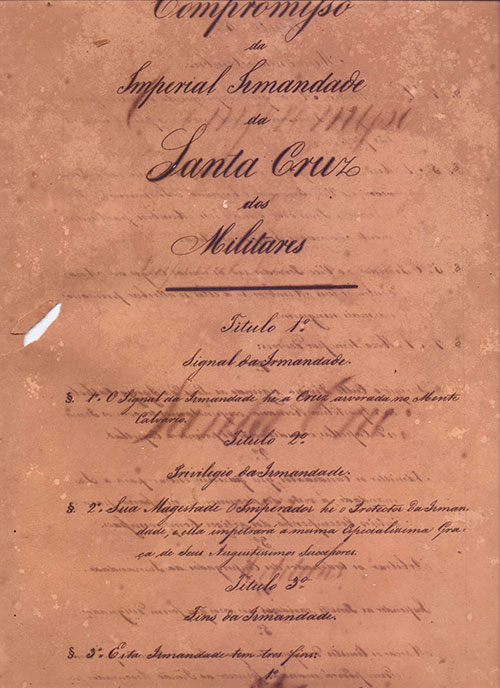 Compromisso
da
Imperial Irmandade
da
Santa Cruz
dos
Militares
Titulo 1º
Signal da Irmandade.
§. 1º O Signal da Irmandade he a Cruz arvorada no Monte
Calvario.
Titulo 2º
Privilegio da Irmandade.
§. 2º Sua Magestade O Imperador he o Protector da Irman-
dade, e ella impetrará a mesma Especialissima Gra-
ça de Seus Augustissimos Successores.
Titulo 3º
Fins da Irmandade.
§. 3º Esta Irmandade tem tres fins:
1º